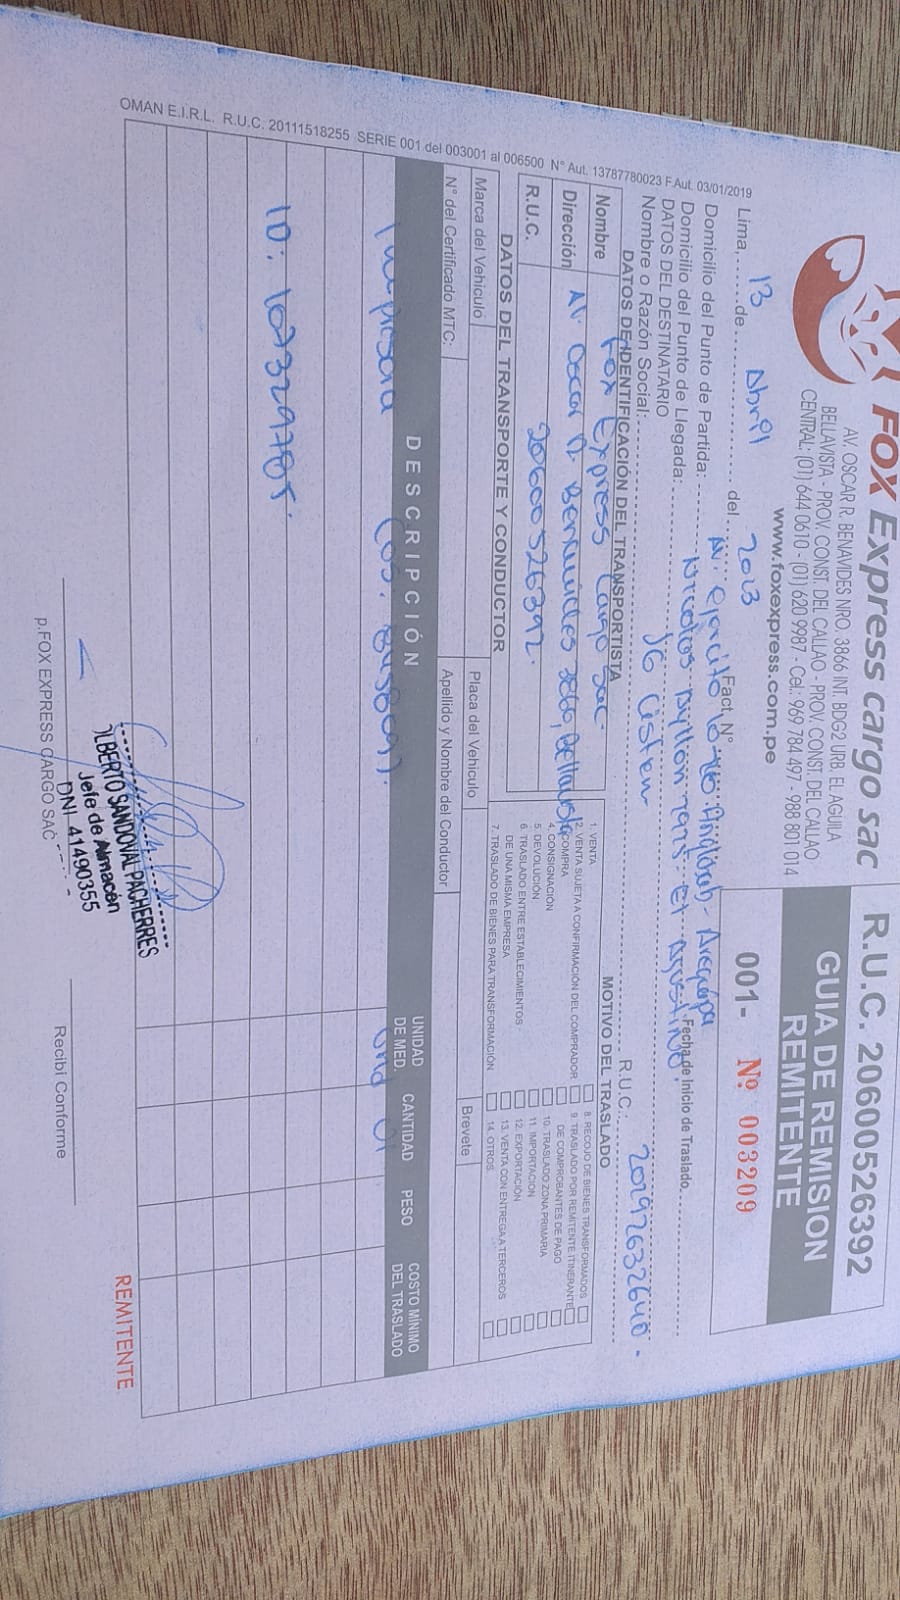 FOX Express cargo sac
AV. OSCAR R. BENAVIDES NRO. 3866 INT. BDG2 URB. EL AGUILA
BELLAVISTA - PROV. CONST. DEL CALLAO - PROV. CONST. DEL CALLAO
CENTRAL: (01) 644 0610 - (01) 620 9987 - Cel.: 969 784 497 - 988 801 014
www.foxexpress.com.pe
R.U.C. 20600526392
GUIA DE REMISION
REMITENTE
001- Nº 003209
Lima, 13 de Abril del 2023 Fact. N°
Domicilio del Punto de Partida: Av. Ejercito Arequipa Fecha de Inicio de Traslado
Domicilio del Punto de Llegada: El Agustino.
DATOS DEL DESTINATARIO
Nombre o Razón Social: R.U.C.: 20192632640.
DATOS DE IDENTIFICACIÓN DEL TRANSPORTISTA
Nombre Fox Express Cargo Sac
Dirección Av. Oscar R. Benavides 3866, Bellavista
R.U.C. 20600526392.
MOTIVO DEL TRASLADO
1. VENTA
2. VENTA SUJETA A CONFIRMACIÓN DEL COMPRADOR
COMPRA
4. CONSIGNACIÓN
5. DEVOLUCIÓN
6. TRASLADO ENTRE ESTABLECIMIENTOS
DE UNA MISMA EMPRESA
7. TRASLADO DE BIENES PARA TRANSFORMACIÓN
8. RECOJO DE BIENES TRANSFORMADOS
9. TRASLADO POR REMITENTE ITINERANTE
DE COMPROBANTES DE PAGO
10. TRASLADO ZONA PRIMARIA
11. IMPORTACIÓN
12. EXPORTACIÓN
13. VENTA CON ENTREGA A TERCEROS
14. OTROS
DATOS DEL TRANSPORTE Y CONDUCTOR
Marca del Vehículo Placa del Vehículo
N° del Certificado MTC: Apellido y Nombre del Conductor Brevete
DESCRIPCIÓN UNIDAD DE MED. CANTIDAD PESO COSTO MÍNIMO DEL TRASLADO
Impresora Und 01
ID: 107329785.
ALBERTO SANDOVAL PACHERRES
Jefe de Almacén
DNI 41490355
p.FOX EXPRESS CARGO SAC
Recibí Conforme
REMITENTE
OMAN E.I.R.L. R.U.C. 20111518255 SERIE 001 del 003001 al 006500 N° Aut. 13787780023 F.Aut. 03/01/2019